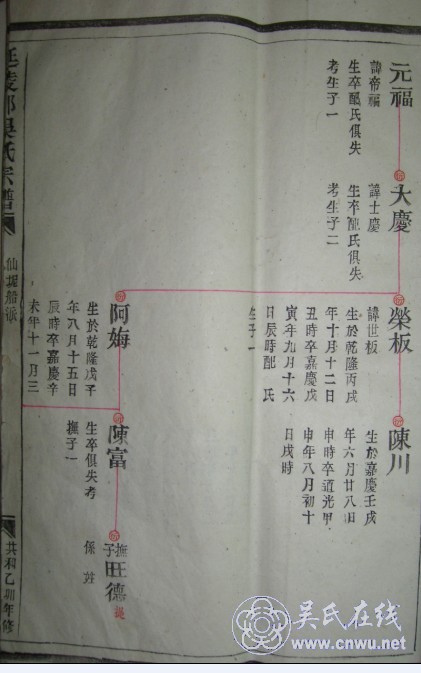 元福
諱帝福
生卒配氏俱失
考生子一
大慶
諱士慶
生卒配氏俱失
考生子二
榮板
諱世板
生於乾隆丙戌
年十月十二日
丑時卒嘉慶戊
寅年九月十六
日辰時配 氏
生子一
陳川
生於嘉慶壬戌
年六月廿八日
申時卒道光甲
申年八月初十
日戌時
阿娒
生於乾隆戊子
年八月十五日
辰時卒嘉慶辛
未年十一月三
陳富
生卒俱失考
撫子一
撫子旺德
係 姓
延陵郡吳氏宗譜
船派
共和乙卯年修
吴氏在线
www.cnwu.net